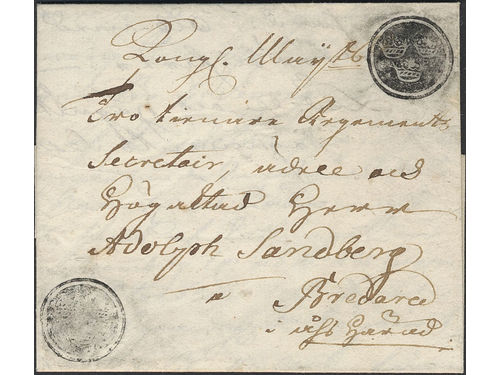 Kongl. Maytz
Tro tienare Regements
Secretair, ädle och
Högaktad Herr
Adolph Sandberg
a Bredared
i åhs Härad